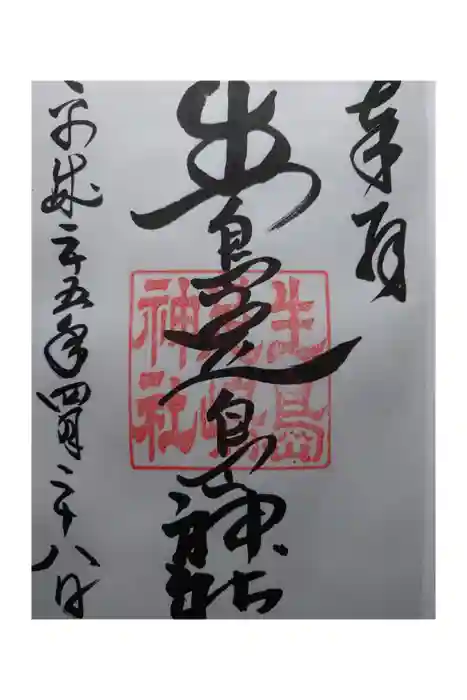 奉拝
生島足島神社
生島
足嶋
神社
平成二十五年四月二十八日